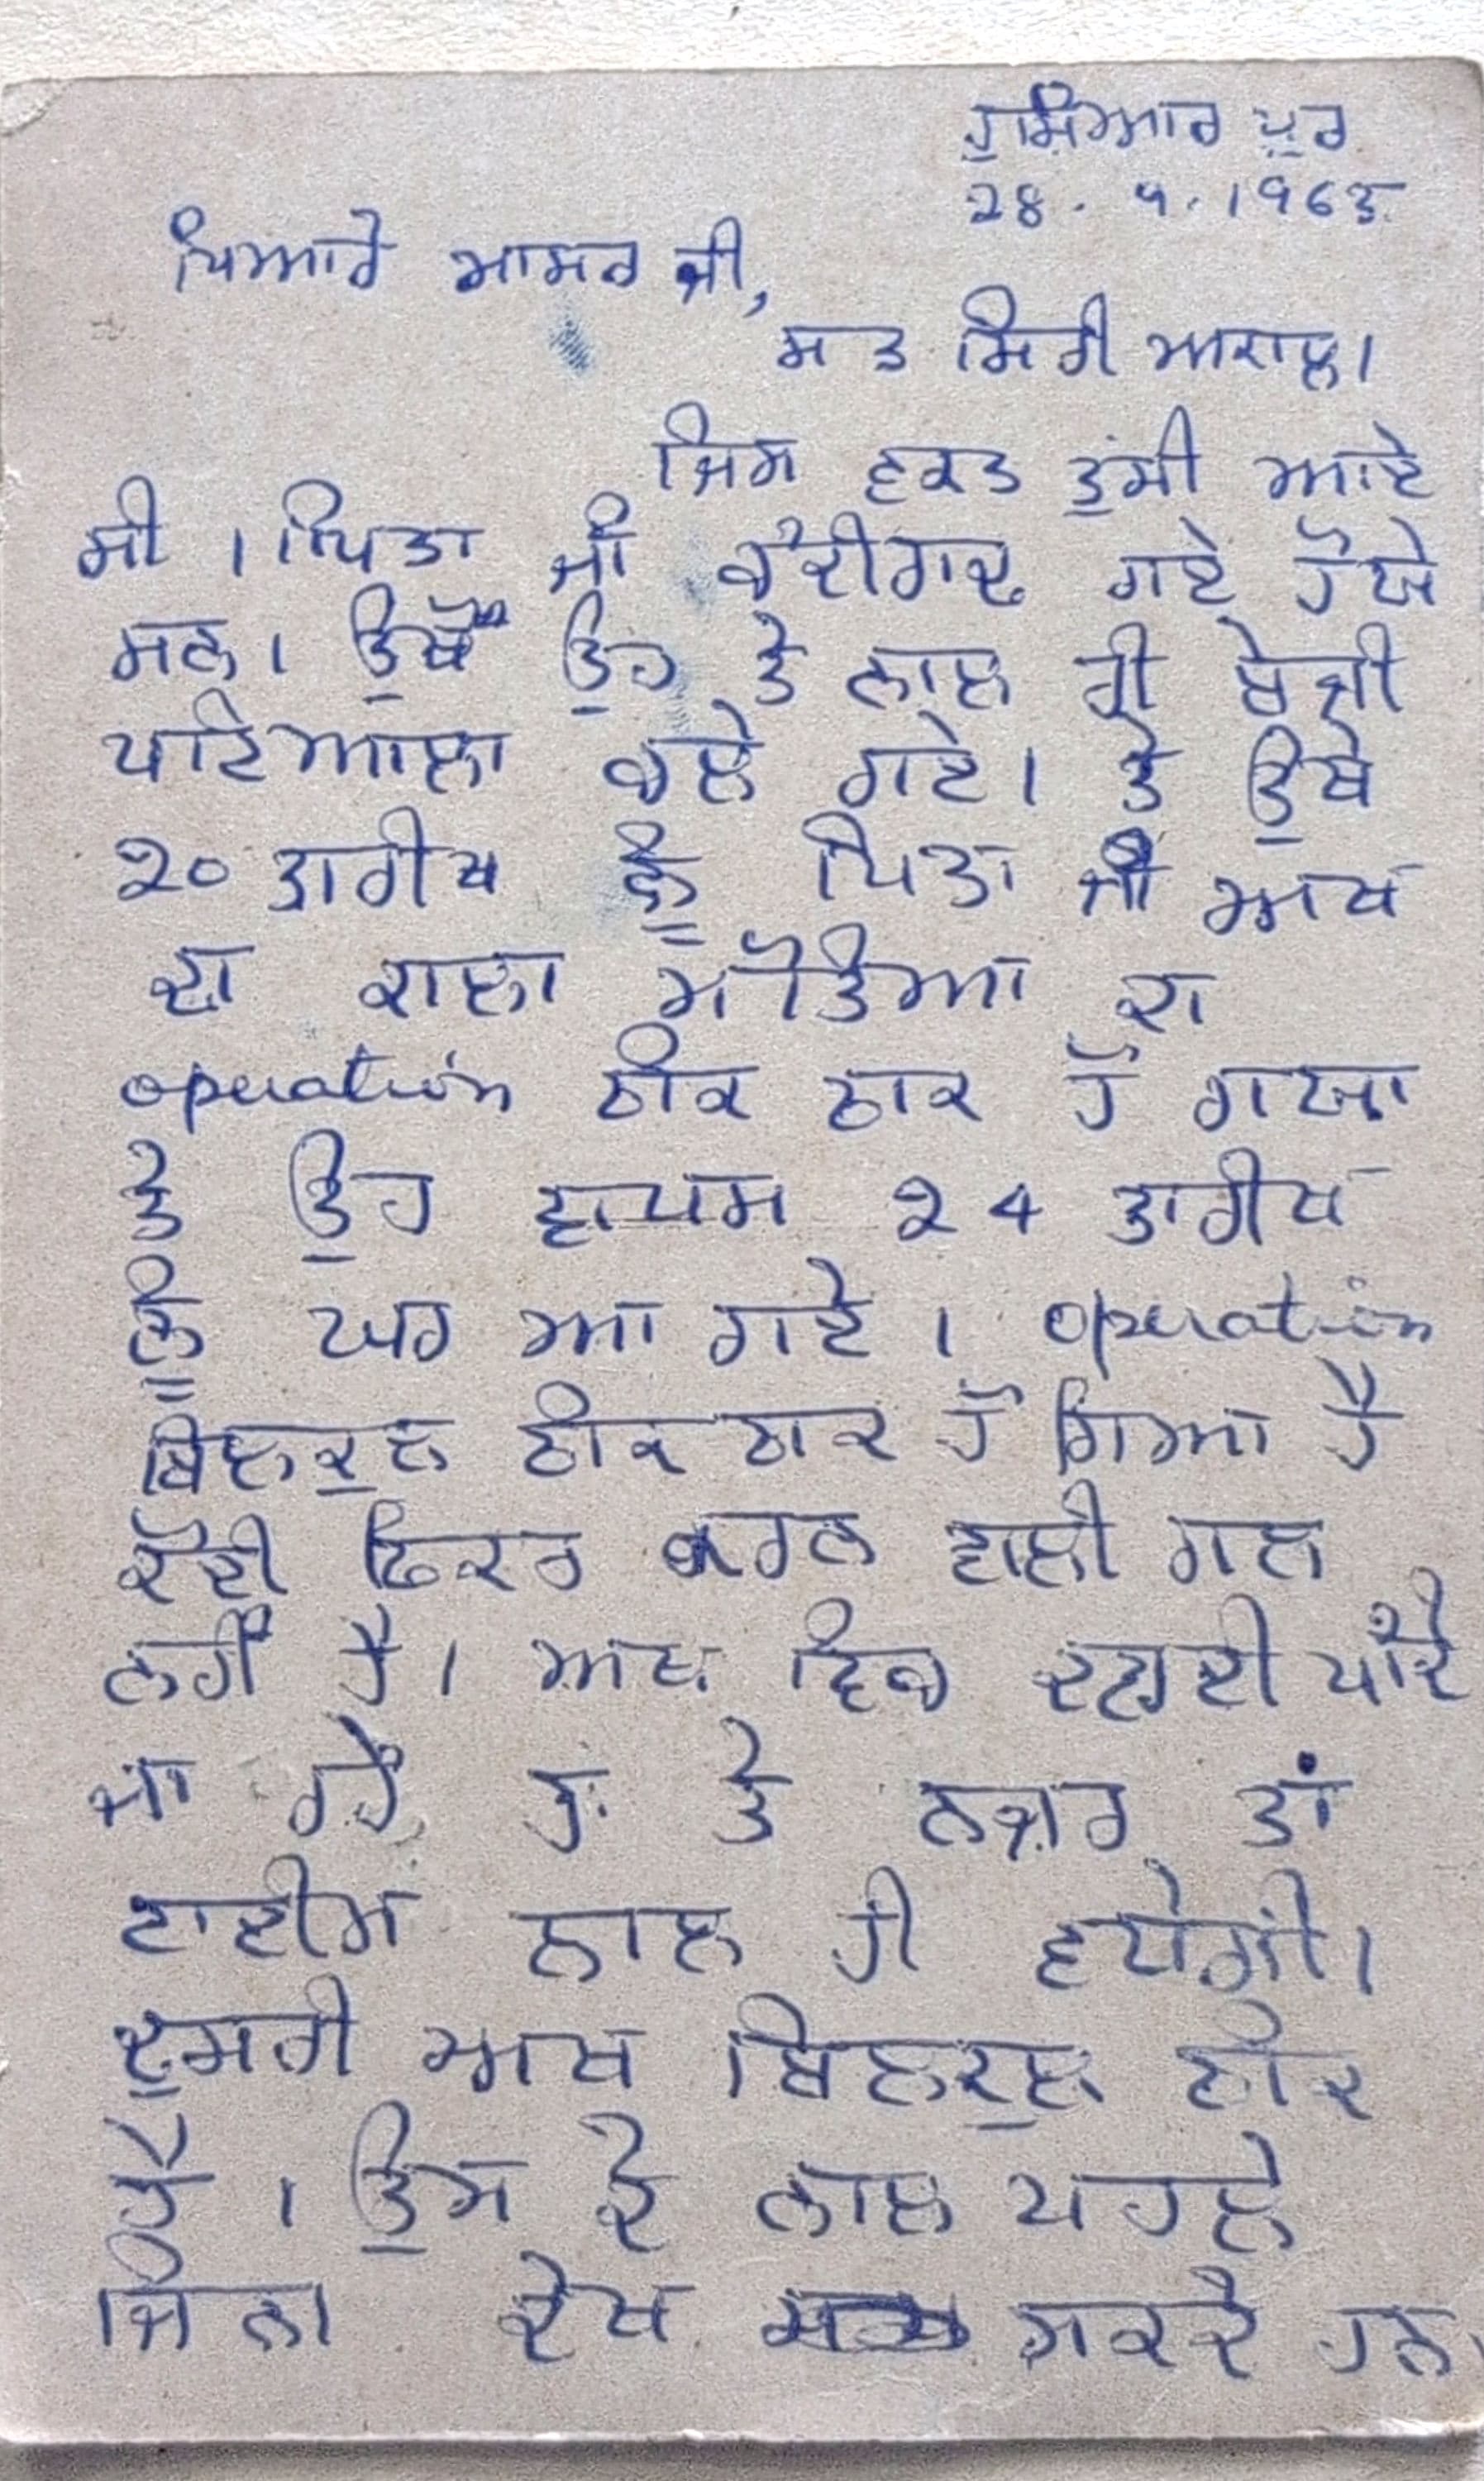 ਹੁਸ਼ਿਆਰ ਪੁਰ
28. 9. 1963
ਪਿਆਰੇ ਮਾਸਰ ਜੀ,
ਸਤ ਸਿਰੀ ਅਕਾਲ।
ਜਿਸ ਵਕਤ ਤੁਸੀਂ ਆਏ
ਸੀ । ਪਿਤਾ ਜੀ ਚੰਦੀਗੜ ਗਏ ਹੋਏ
ਸਨ। ਉਥੋਂ ਉਹ ਤੇ ਨਾਲ ਹੀ ਬੇਜੀ
ਪਟਿਆਲਾ ਚਲੇ ਗਏ। ਤੇ ਉਥੇ
੨੦ ਤਾਰੀਖ ਨੂੰ ਪਿਤਾ ਜੀ ਅਖ
ਦਾ ਕਾਲਾ ਮੋਤਿਆ ਦਾ
operation ਠੀਕ ਠਾਕ ਹੋ ਗਯਾ
ਤੇ ਉਹ ਵਾਪਸ ੨4 ਤਾਰੀਖ
ਨੂੰ ਘਰ ਆ ਗਏ । operation
ਬਿਲਕੁਲ ਠੀਕ ਠਾਕ ਹੋ ਗਿਆ ਹੈ
ਕੋਈ ਫਿਕਰ ਕਰਨ ਵਾਲੀ ਗਲ
ਨਹੀਂ ਹੈ। ਅਖ ਵਿਚ ਦਵਾਈ ਪਾਂਦੇ
ਜਾ ਰਹੇ ਹਾਂ ਤੇ ਨਜ਼ਰ ਤਾਂ
ਟਾਈਮ ਨਾਲ ਹੀ ਵਧੇਗੀ।
ਦੂਸਰੀ ਅਖ ਬਿਲਕੁਲ ਠੀਕ
ਹੈ । ਉਸ ਦੇ ਨਾਲ ਪਹਲੇ
ਜਿੰਨਾ ਦੇਖ ਸਕਦੇ ਹਨ